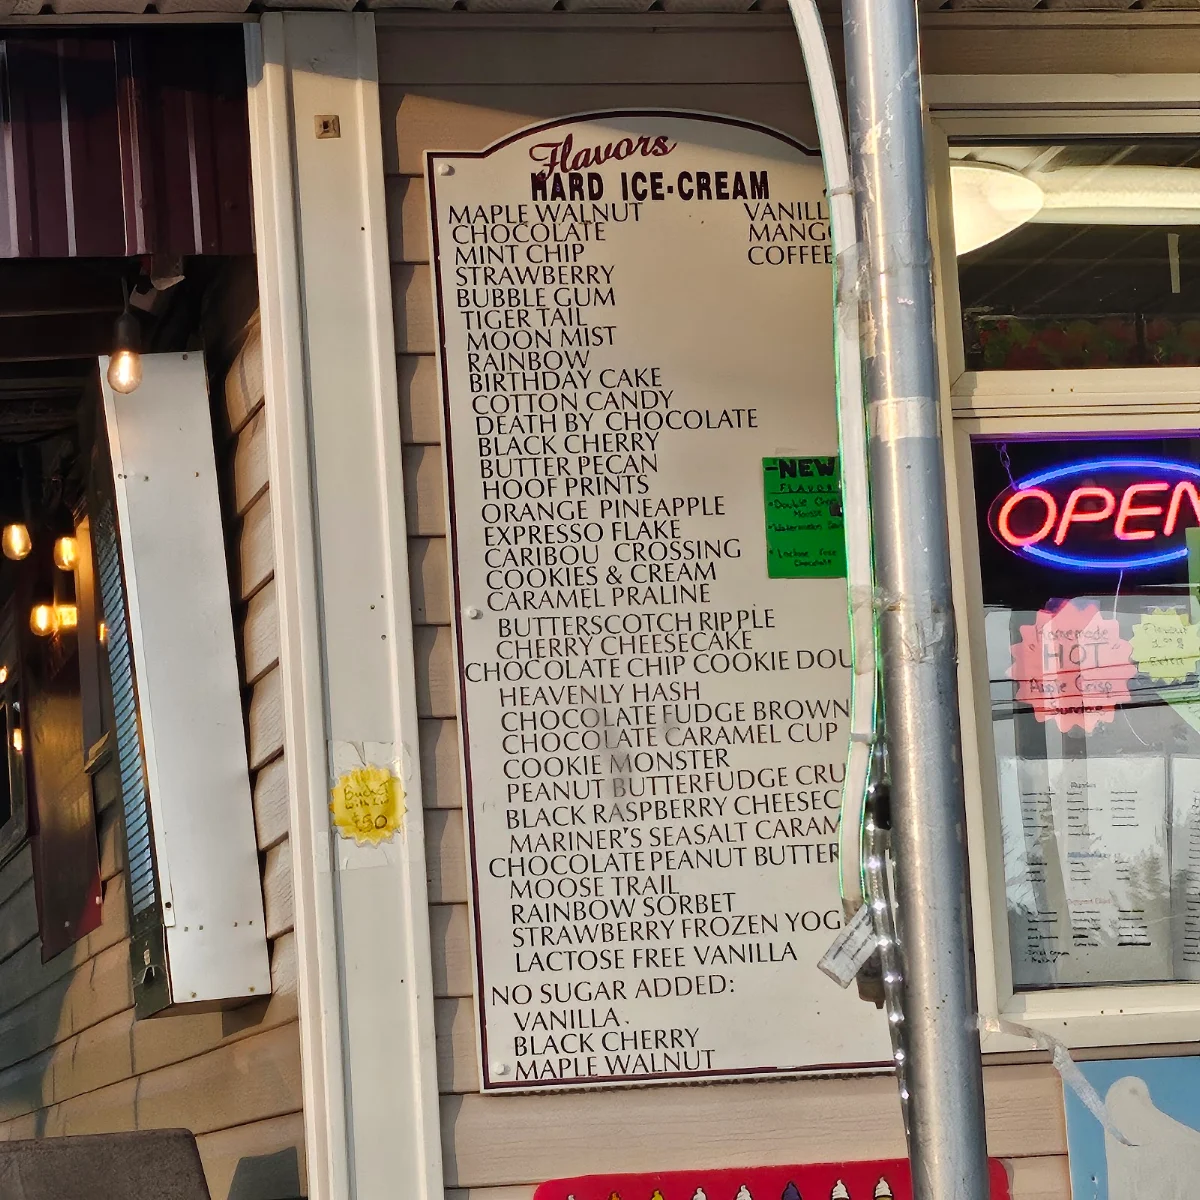 Flavors
HARD ICE-CREAM
MAPLE WALNUT
CHOCOLATE
MINT CHIP
STRAWBERRY
BUBBLE GUM
TIGER TAIL
MOON MIST
RAINBOW
BIRTHDAY CAKE
COTTON CANDY
DEATH BY CHOCOLATE
BLACK CHERRY
BUTTER PECAN
HOOF PRINTS
ORANGE PINEAPPLE
EXPRESSO FLAKE
CARIBOU CROSSING
COOKIES & CREAM
CARAMEL PRALINE
BUTTERSCOTCH RIPPLE
CHERRY CHEESECAKE
CHOCOLATE CHIP COOKIE DOU
HEAVENLY HASH
CHOCOLATE FUDGE BROWN
CHOCOLATE CARAMEL CUP
COOKIE MONSTER
PEANUT BUTTERFUDGE CRU
BLACK RASPBERRY CHEESEC
MARINER'S SEASALT CARAM
CHOCOLATE PEANUT BUTTER
MOOSE TRAIL
RAINBOW SORBET
STRAWBERRY FROZEN YOG
LACTOSE FREE VANILLA
NO SUGAR ADDED:
VANILLA
BLACK CHERRY
MAPLE WALNUT
VANILL
MANGO
COFFEE
-NEW
FLAVOR
Double Cho
Mousse
Watermelon
Lactose Free
Chocolate
Bucket
with Lid
$50
OPEN
Homemade
"HOT"
Apple Crisp
Sundae
Extra